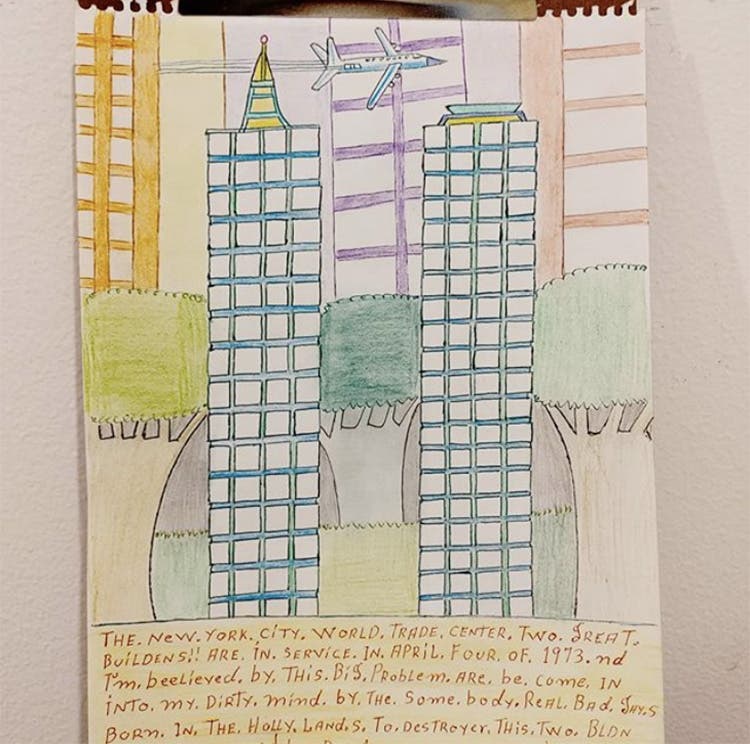 THE. NEW. YORK. CITY. WORLD. TRADE. CENTER. TWO. GREAT.
BUILDENS!! ARE. IN. SERVICE. IN. APRIL. FOUR. OF. 1973. nd
I'm. beelieved. by. THIS. BIG. Problem. ARE. be. COME. IN
INTO. my. DIRTY. mind. by. THE. Some. body. REAL. BAd. GAY.S
BORN. IN. THE. HOLLY. LAND.S. TO. DESTROYER. THIS. TWO. BLDN